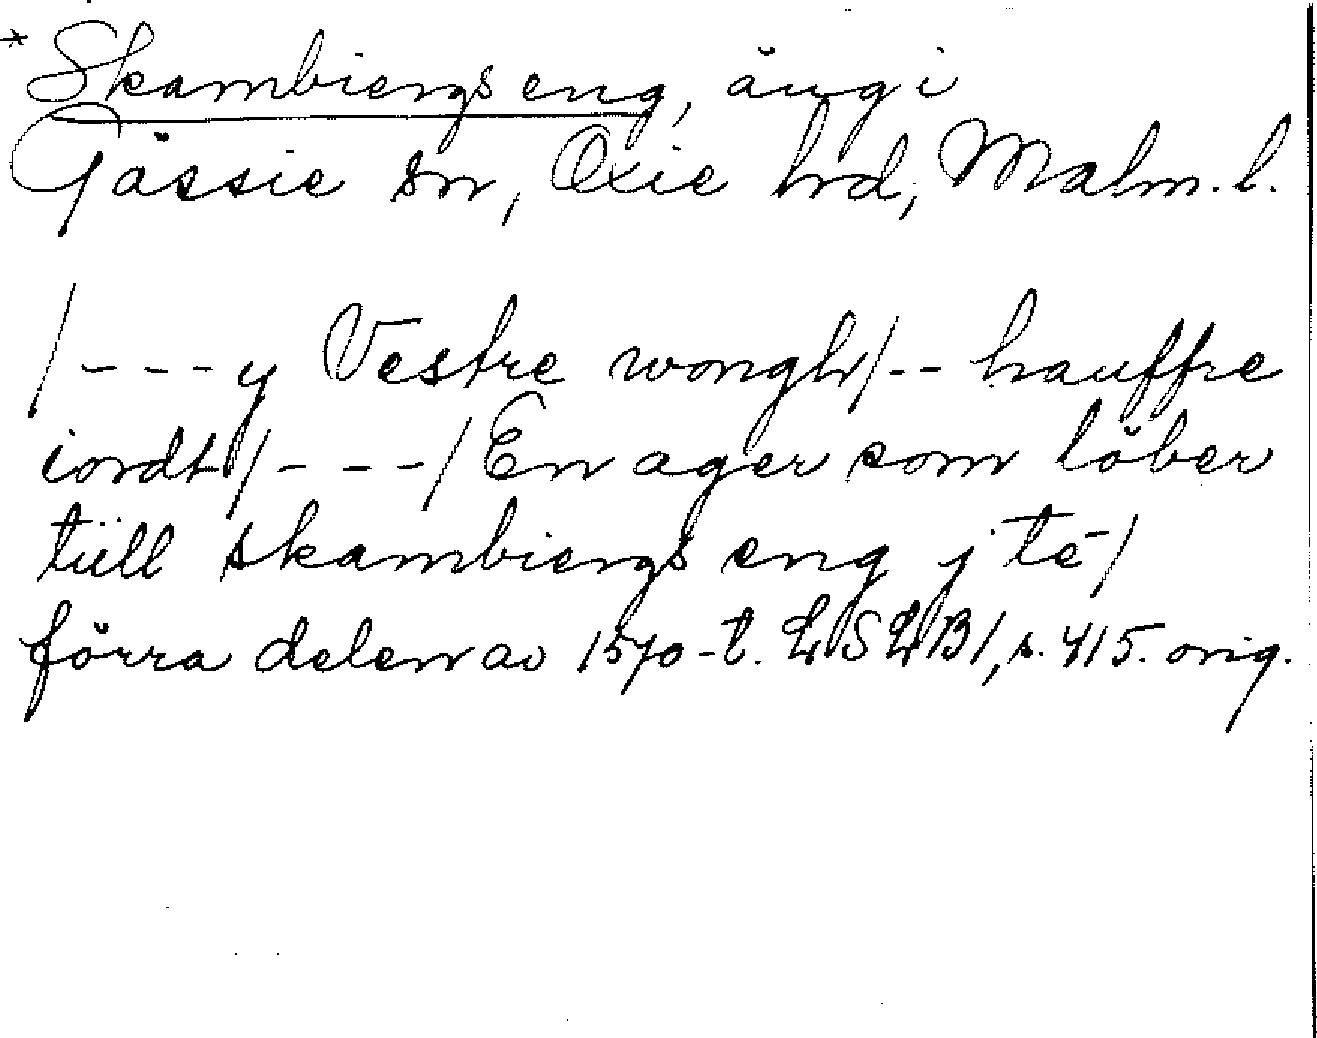 * Skambiergs eng, äng i
Gässie sn, Oxie hd, Malm. l.
/ - - - y Vestre wongh/ - - hauffre
iordt/ - - - / En ager som löber
tüll skambiergs eng j te - /
förra delen av 1570-t. LSLB1, s. 415. orig.